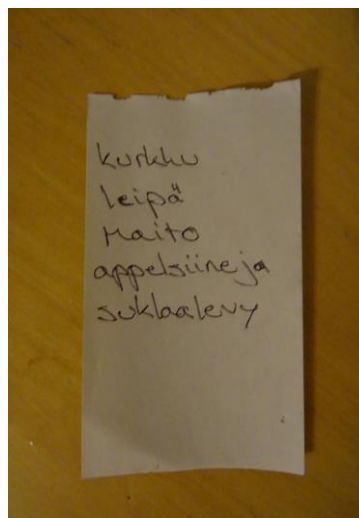 kurkku
leipä
Maito
appelsiineja
suklaalevy